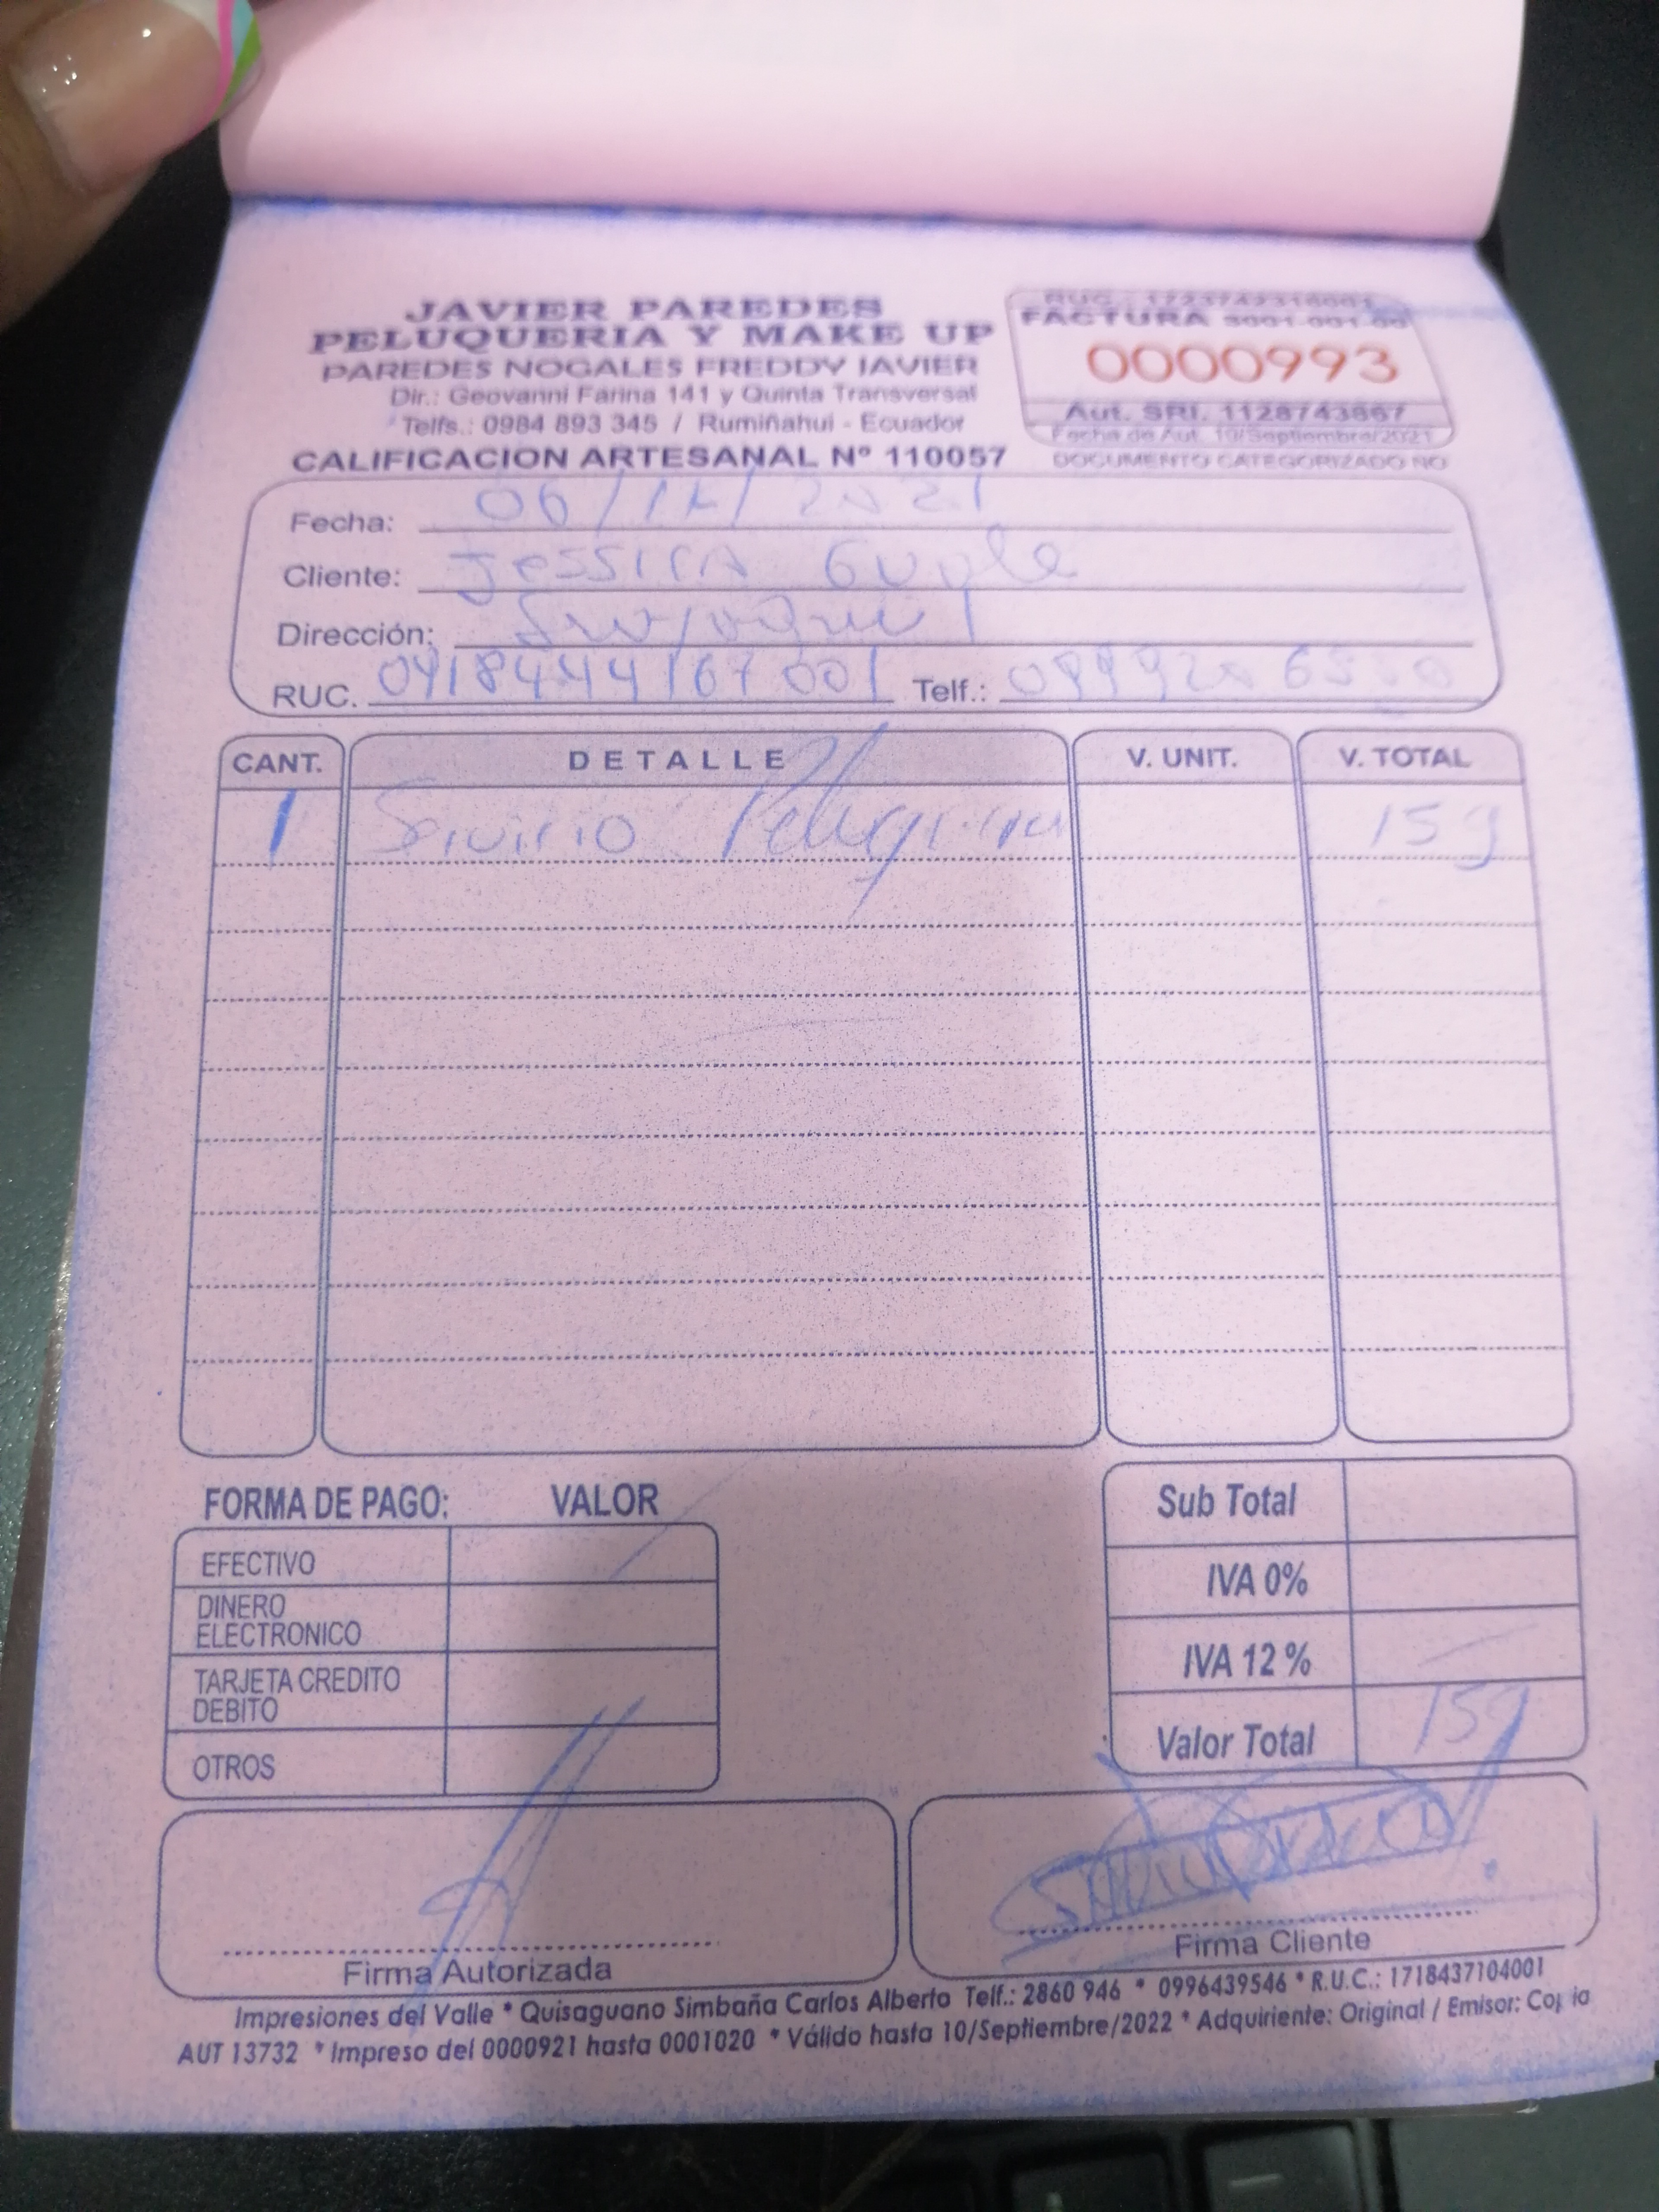 JAVIER PAREDES
PELUQUERIA Y MAKE UP
PAREDES NOGALES FREDDY JAVIER
Dir.: Geovanni Farina 141 y Quinta Transversal
Telfs.: 0984 893 345 / Rumiñahui - Ecuador
CALIFICACION ARTESANAL Nº 110057
RUC.:
FACTURA
0000993
Aut. SRI. 1128743867
Fecha de Aut. 10/Septiembre/2021
DOCUMENTO CATEGORIZADO NO
Fecha: 06/12/2021
Cliente: Jessica
Dirección:
RUC. Telf.:
CANT. DETALLE V. UNIT. V. TOTAL
1 Servicio 15
FORMA DE PAGO: VALOR
EFECTIVO
DINERO
ELECTRONICO
TARJETA CREDITO
DEBITO
OTROS
Sub Total
IVA 0%
IVA 12 %
Valor Total 15
Firma Autorizada
Firma Cliente
Impresiones del Valle * Quisaguano Simbaña Carlos Alberto Telf.: 2860 946 * 0996439546 * R.U.C.: 1718437104001
AUT 13732 * Impreso del 0000921 hasta 0001020 * Válido hasta 10/Septiembre/2022 * Adquiriente: Original / Emisor: Copia